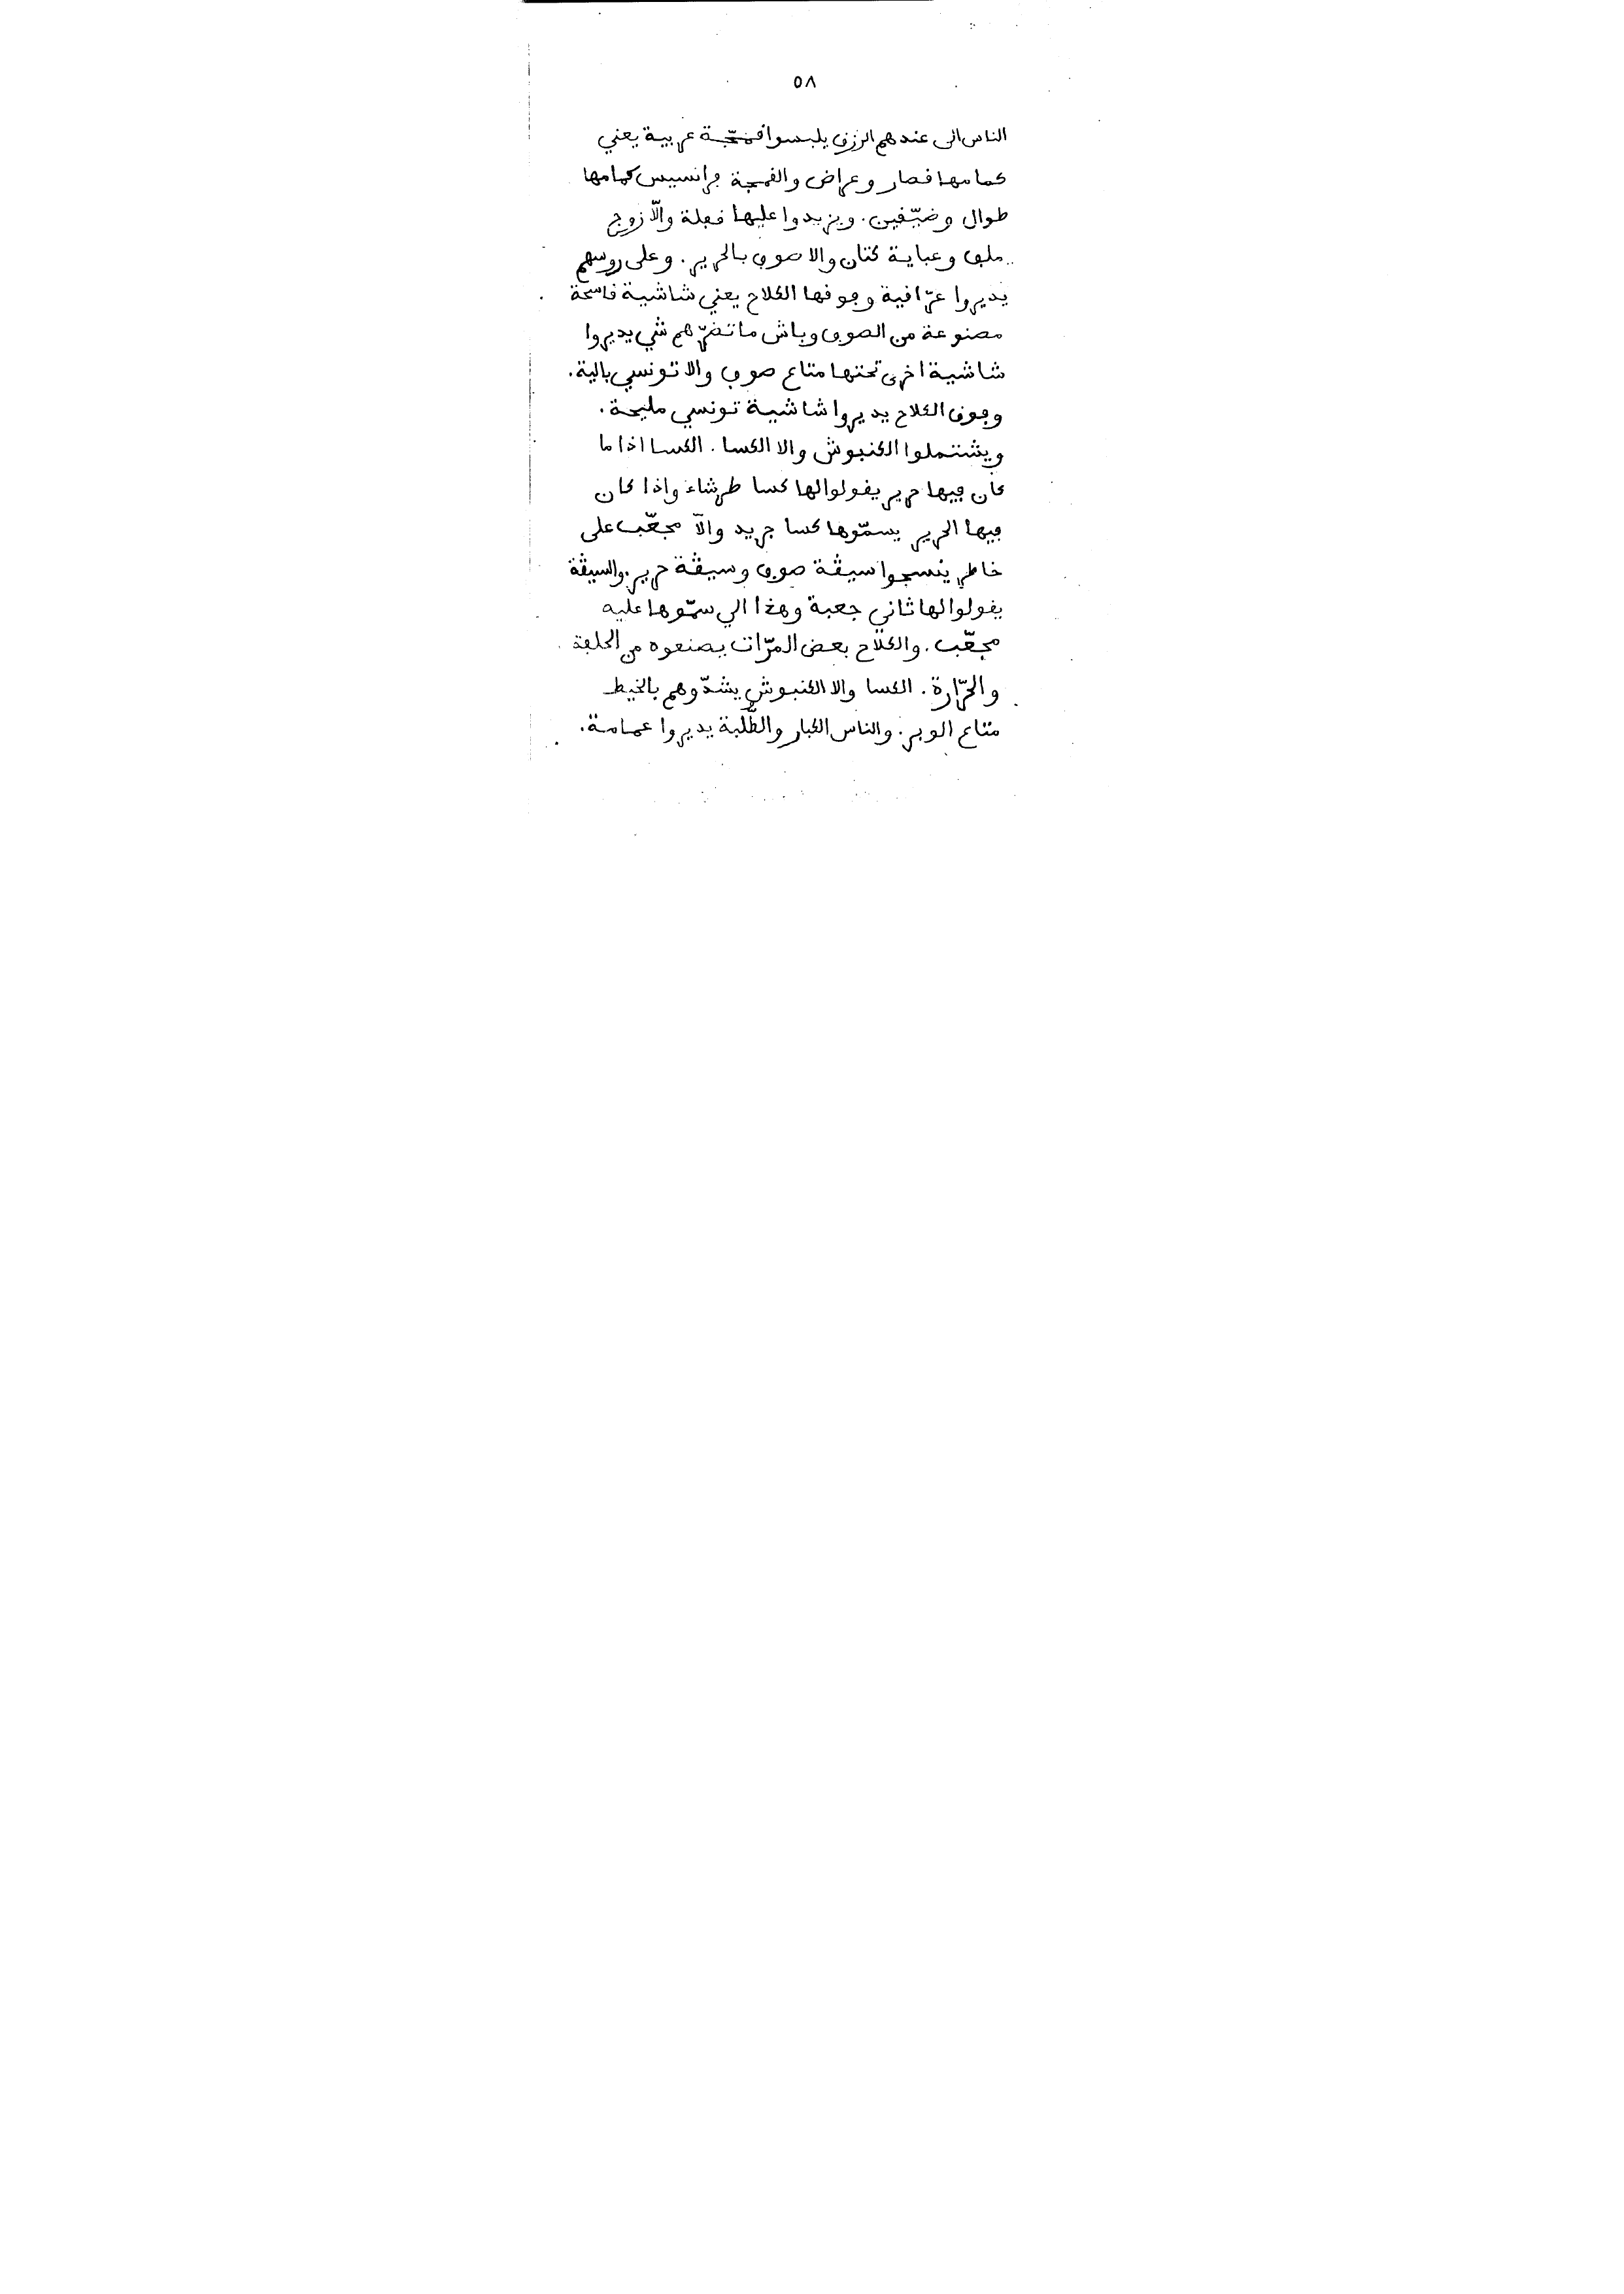 ٥٨
الناس الى عندهم الرزق يلبسوا قمجّة عربية يعني
كمامها قصار وعراض والقمجة فرانسيس كمامها
طوال وضيّقين. ويزيدوا عليها قفلة والّا زوج
ملف وعباية كتان والا صوف بالحرير. وعلى روسهم
يديروا عرّاقية وفوقها الكلاح يعني شاشية قاسحة
مصنوعة من الصوف وباش ما تضرّهم شي يديروا
شاشية اخرى تحتها متاع صوف والا تونسي بالية.
وفوق الكلاح يديروا شاشية تونسي مليحة.
ويشتملوا الكنبوش والا الكسا. الكسا اذا ما
كان فيها حرير يقولوا لها كسا طرشاء واذا كان
فيها الحرير يسمّوها كسا جريد والّا مجعّب على
خاطر ينسجوا سيڨة صوف وسيڨة حرير. والسيڨة
يقولوا لها ثاني جعبة وهذا الي سمّوها عليه
مجعّب. والكلاح بعض المرّات يصنعوه من الحلفة
والحرّارة. الكسا والا الكنبوش يشدّوهم بالخيط
متاع الوبر. والناس الكبار والطُّلبة يديروا عمامة.